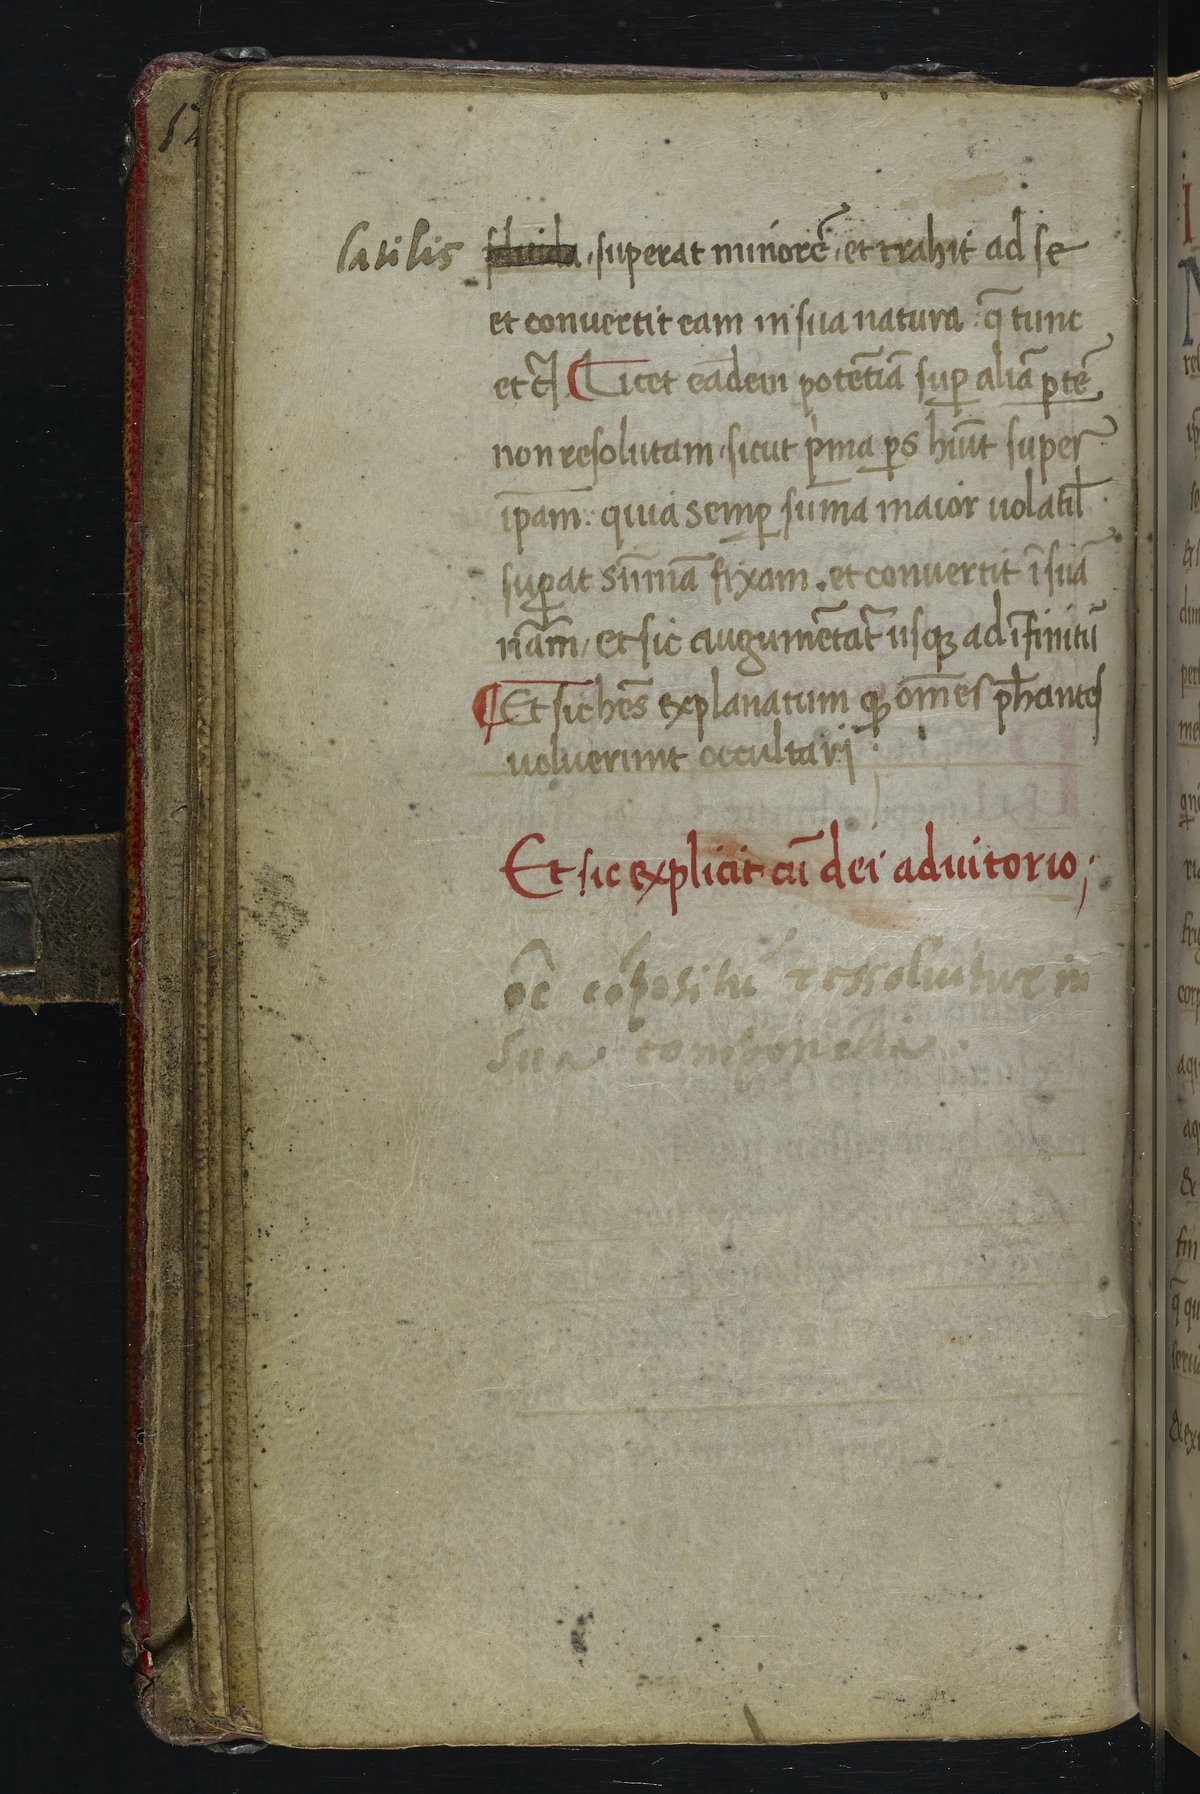 latilis superat minorē, et trahit ad se
et convertit eam in sua natura : q̄ tunc
etc̄ Licet eadem potētiā suꝑ aliā ꝑtē
non resolutam, sicut prima ꝑs hiūt super
ip̄am : quia semꝑ sum̄a maior volatil
suꝑat sum̄ā fixam . et convertit ī suā
nām / Et sic augumētat̄ usqꝫ ad īfinitū
Et sic hēs explanatum qꝫ om̄es pĥantes
voluerunt occultari :
Et sic explicit cū dei aduitorio ;
oē cōpositū ressoluitur in
sua componētia .
52